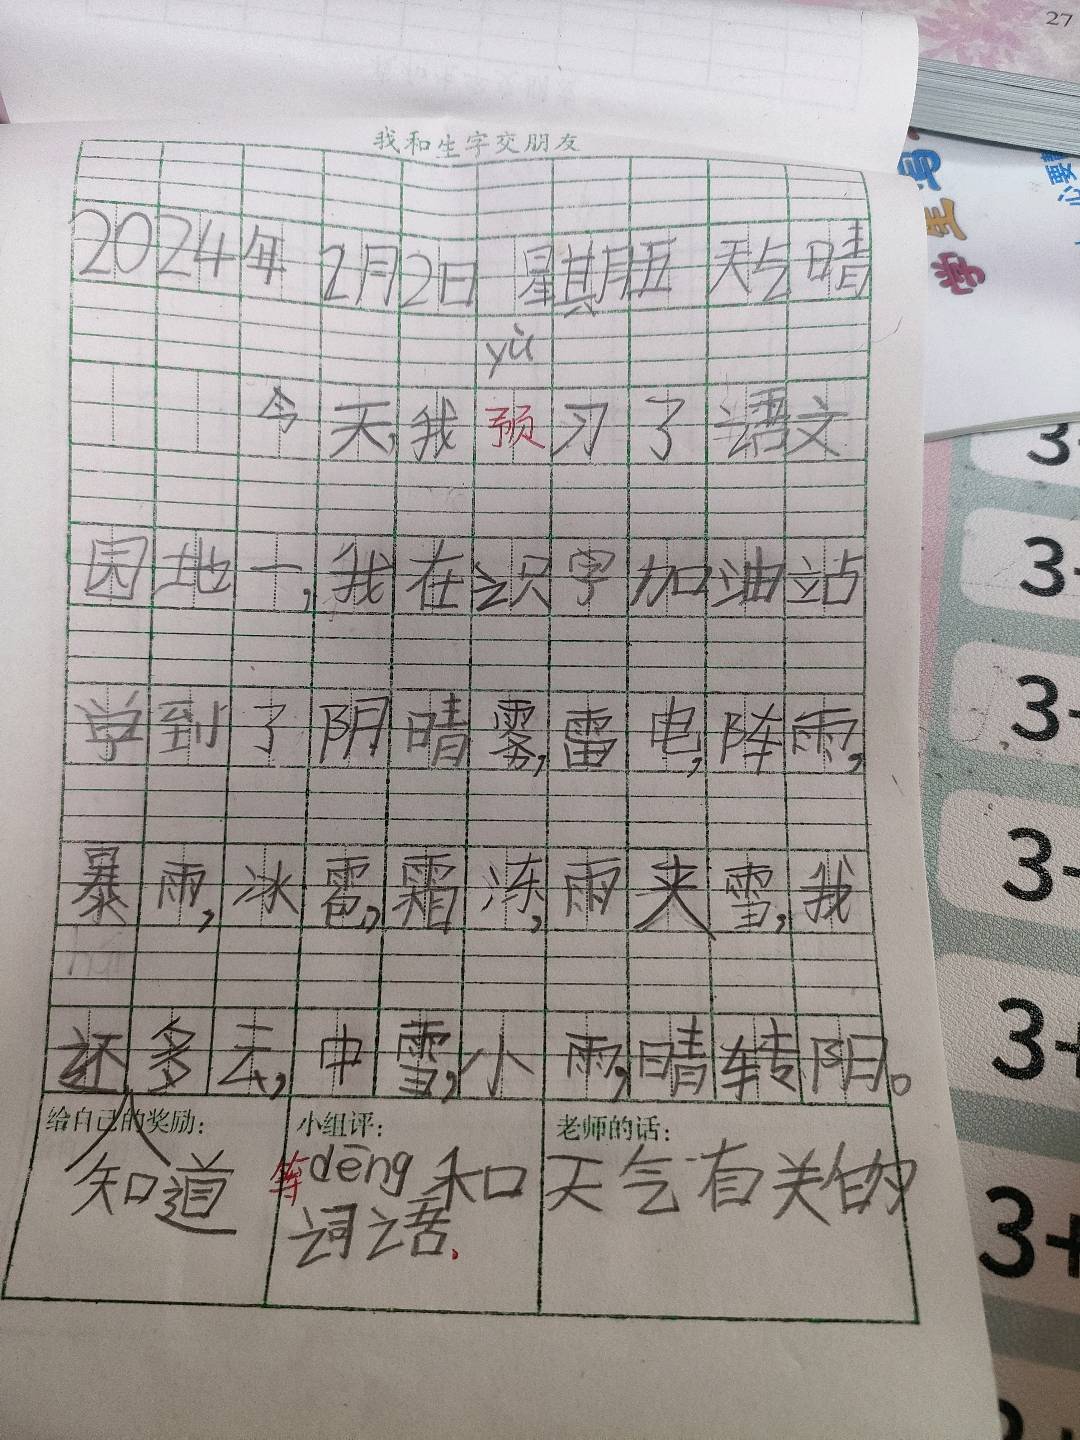 27
我和生字交朋友
2024年2月2日 星其月五 天气晴
yù
今天,我预习了语文
园地一,我在识字加油站
学到了阴晴雾,雷电,阵雨,
暴雨,冰雹,霜冻,雨夹雪,我
还多云,中雪,小雨,晴转阴。
给自己的奖励: 小组评: 老师的话:
知道 等dēng和天气有关的
词语.
学生
心要
3
3
3
3
3+
3+